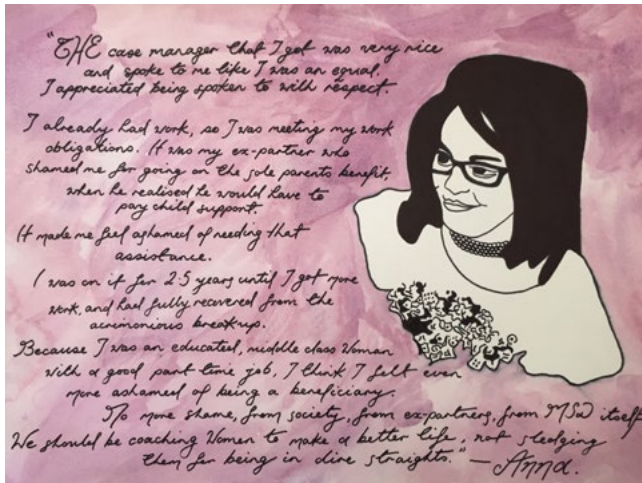 "THE case manager that I got was very nice
and spoke to me like I was an equal.
I appreciated being spoken to with respect.
I already had work, so I was meeting my work
obligations. It was my ex-partner who
shamed me for going on the sole parents benefit,
when he realised he would have to
pay child support.
It made me feel ashamed of needing that
assistance.
I was on it for 2.5 years until I got more
work, and had fully recovered from the
acrimonious breakup.
Because I was an educated, middle class Woman
with a good part time job, I think I felt even
more ashamed of being a beneficiary.
No more shame, from society, from ex-partners, from MSD itself
We should be coaching Women to make a better life, not sledging
them for being in dire straights." — Anna.